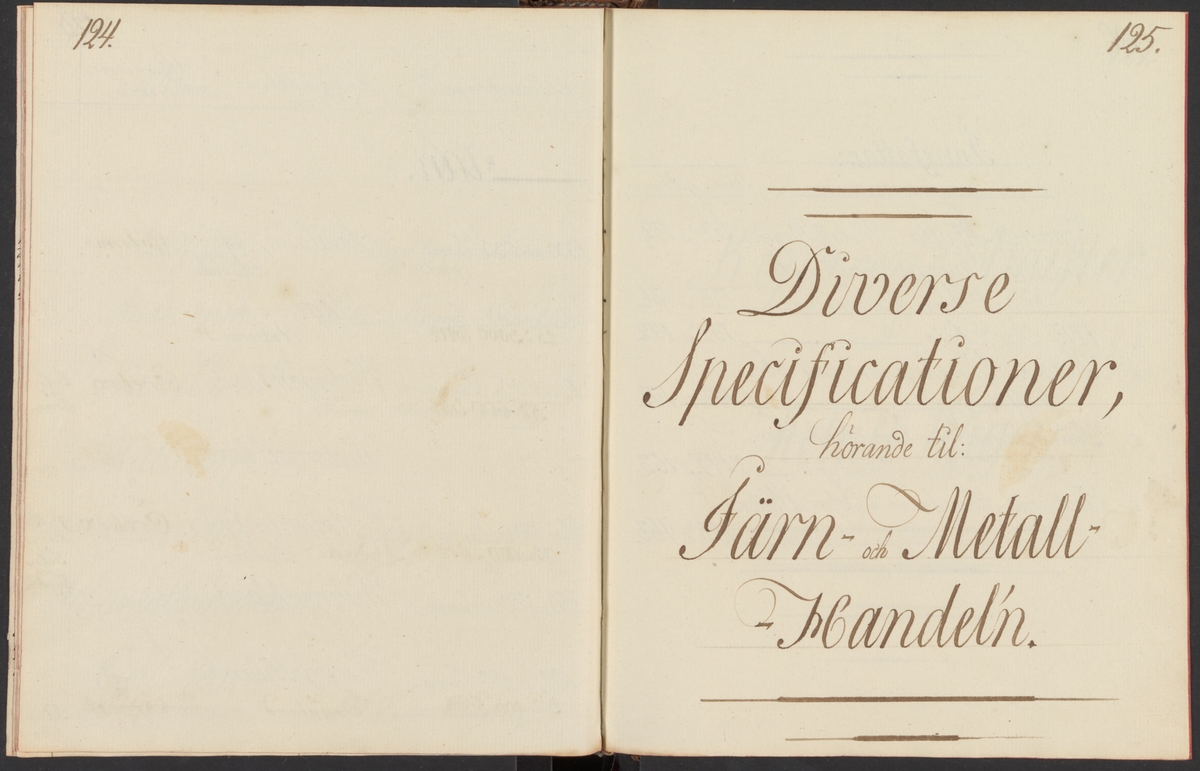 124.
125.
Diverse
Specificationer,
hörande til:
Järn- och Metall-
-Handel'n.